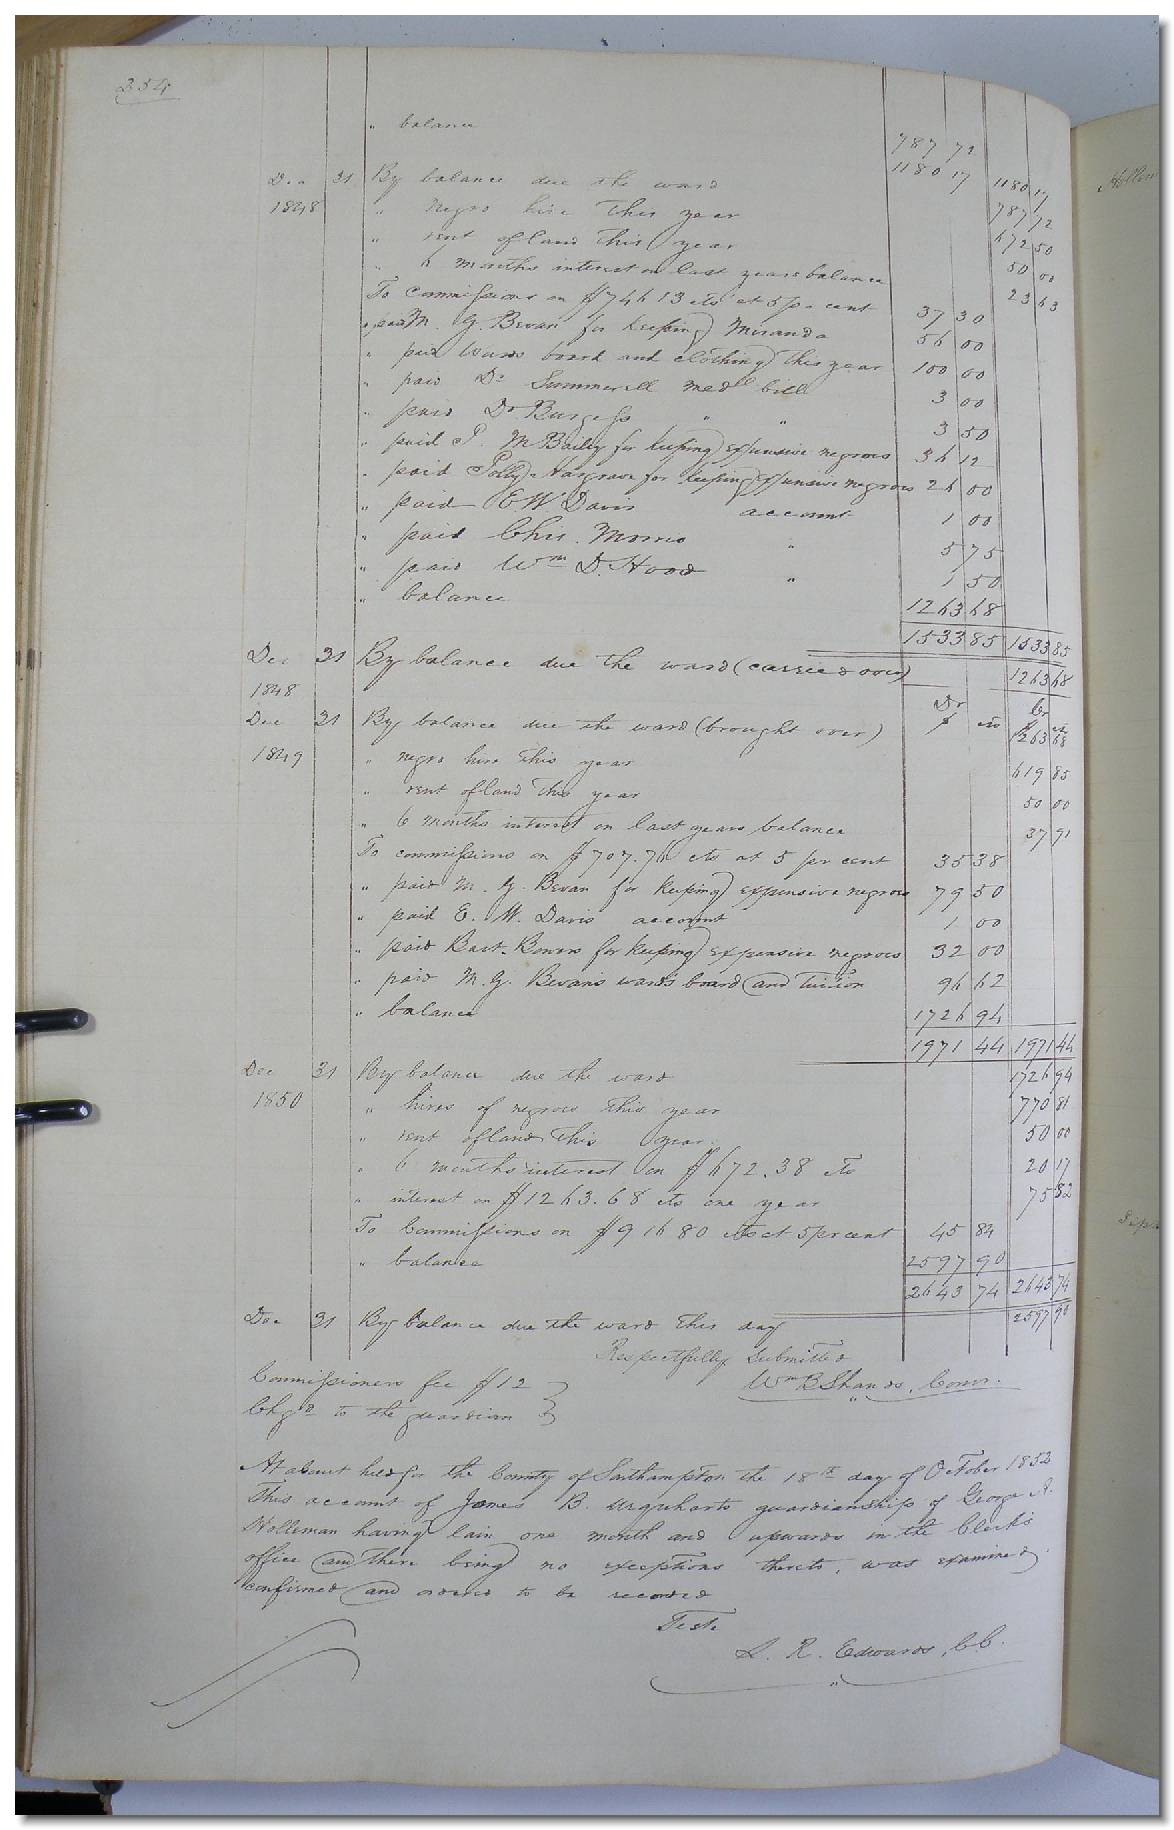 354
" balance 787 72
1180 17 1180 17
Dec 31 By balance due the ward 787 72
1848 " negro hire this year 672 50
" rent of land this year 50 00
" 6 months interest on last years balance 23 63
To commissions on $746 13 cts at 5 per cent 37 30
" paid M. G. Bevan for keeping Miranda 56 00
" paid Wards board and clothing this year 100 00
" paid Dr Summerell medl bill 3 00
" paid Dr Burgess " " 3 50
" paid P. M Bailey for keeping expensive negroes 36 12
" paid Polly Hargrave for keeping expensive negroes 26 00
" paid E W Davis account 1 00
" paid Chis. Morris " 5 75
" paid Wm D. Hood " 1 50
" balance 1263 68
1533 85 1533 85
Dec 31 By balance due the ward (carried over) 1263 68
1848 Dr Cr
Dec 31 By balance due the ward (brought over) $ cts 1263 68
1849 " negro hire this year 619 85
" rent of land this year 50 00
" 6 months interest on last years balance 37 91
To commissions on $707.76 cts at 5 per cent 35 38
" paid M. G. Bevan for keeping expensive negroes 79 50
" paid E. W. Davis account 1 00
" paid Bart. Bowers for keeping expensive negroes 32 00
" paid M. G. Bevans wards board and tuition 96 62
" balance 1726 94
1971 44 1971 44
Dec 31 By balance due the ward 1726 94
1850 " hires of negroes this year 770 81
" rent of land this year 50 00
" 6 months interest on $672.38 cts 20 17
" interest on $1263.68 cts one year 75 82
To Commissions on $916 80 cts at 5 per cent 45 84
" balance 2597 90
2643 74 2643 74
Dec 31 By balance due the ward this day 2597 90
Respectfully Submitted
Commissioners fee $12 Wm B Shands, Comr.
Chgd to the guardian
At a court held for the County of Southampton the 18th day of October 1852
This account of James B. Urquharts guardianship of George A.
Holleman having lain one month and upwards in the Clerk's
office and there being no exceptions thereto, was examined
confirmed and ordered to be recorded
Teste
L. R. Edwards, C.C.